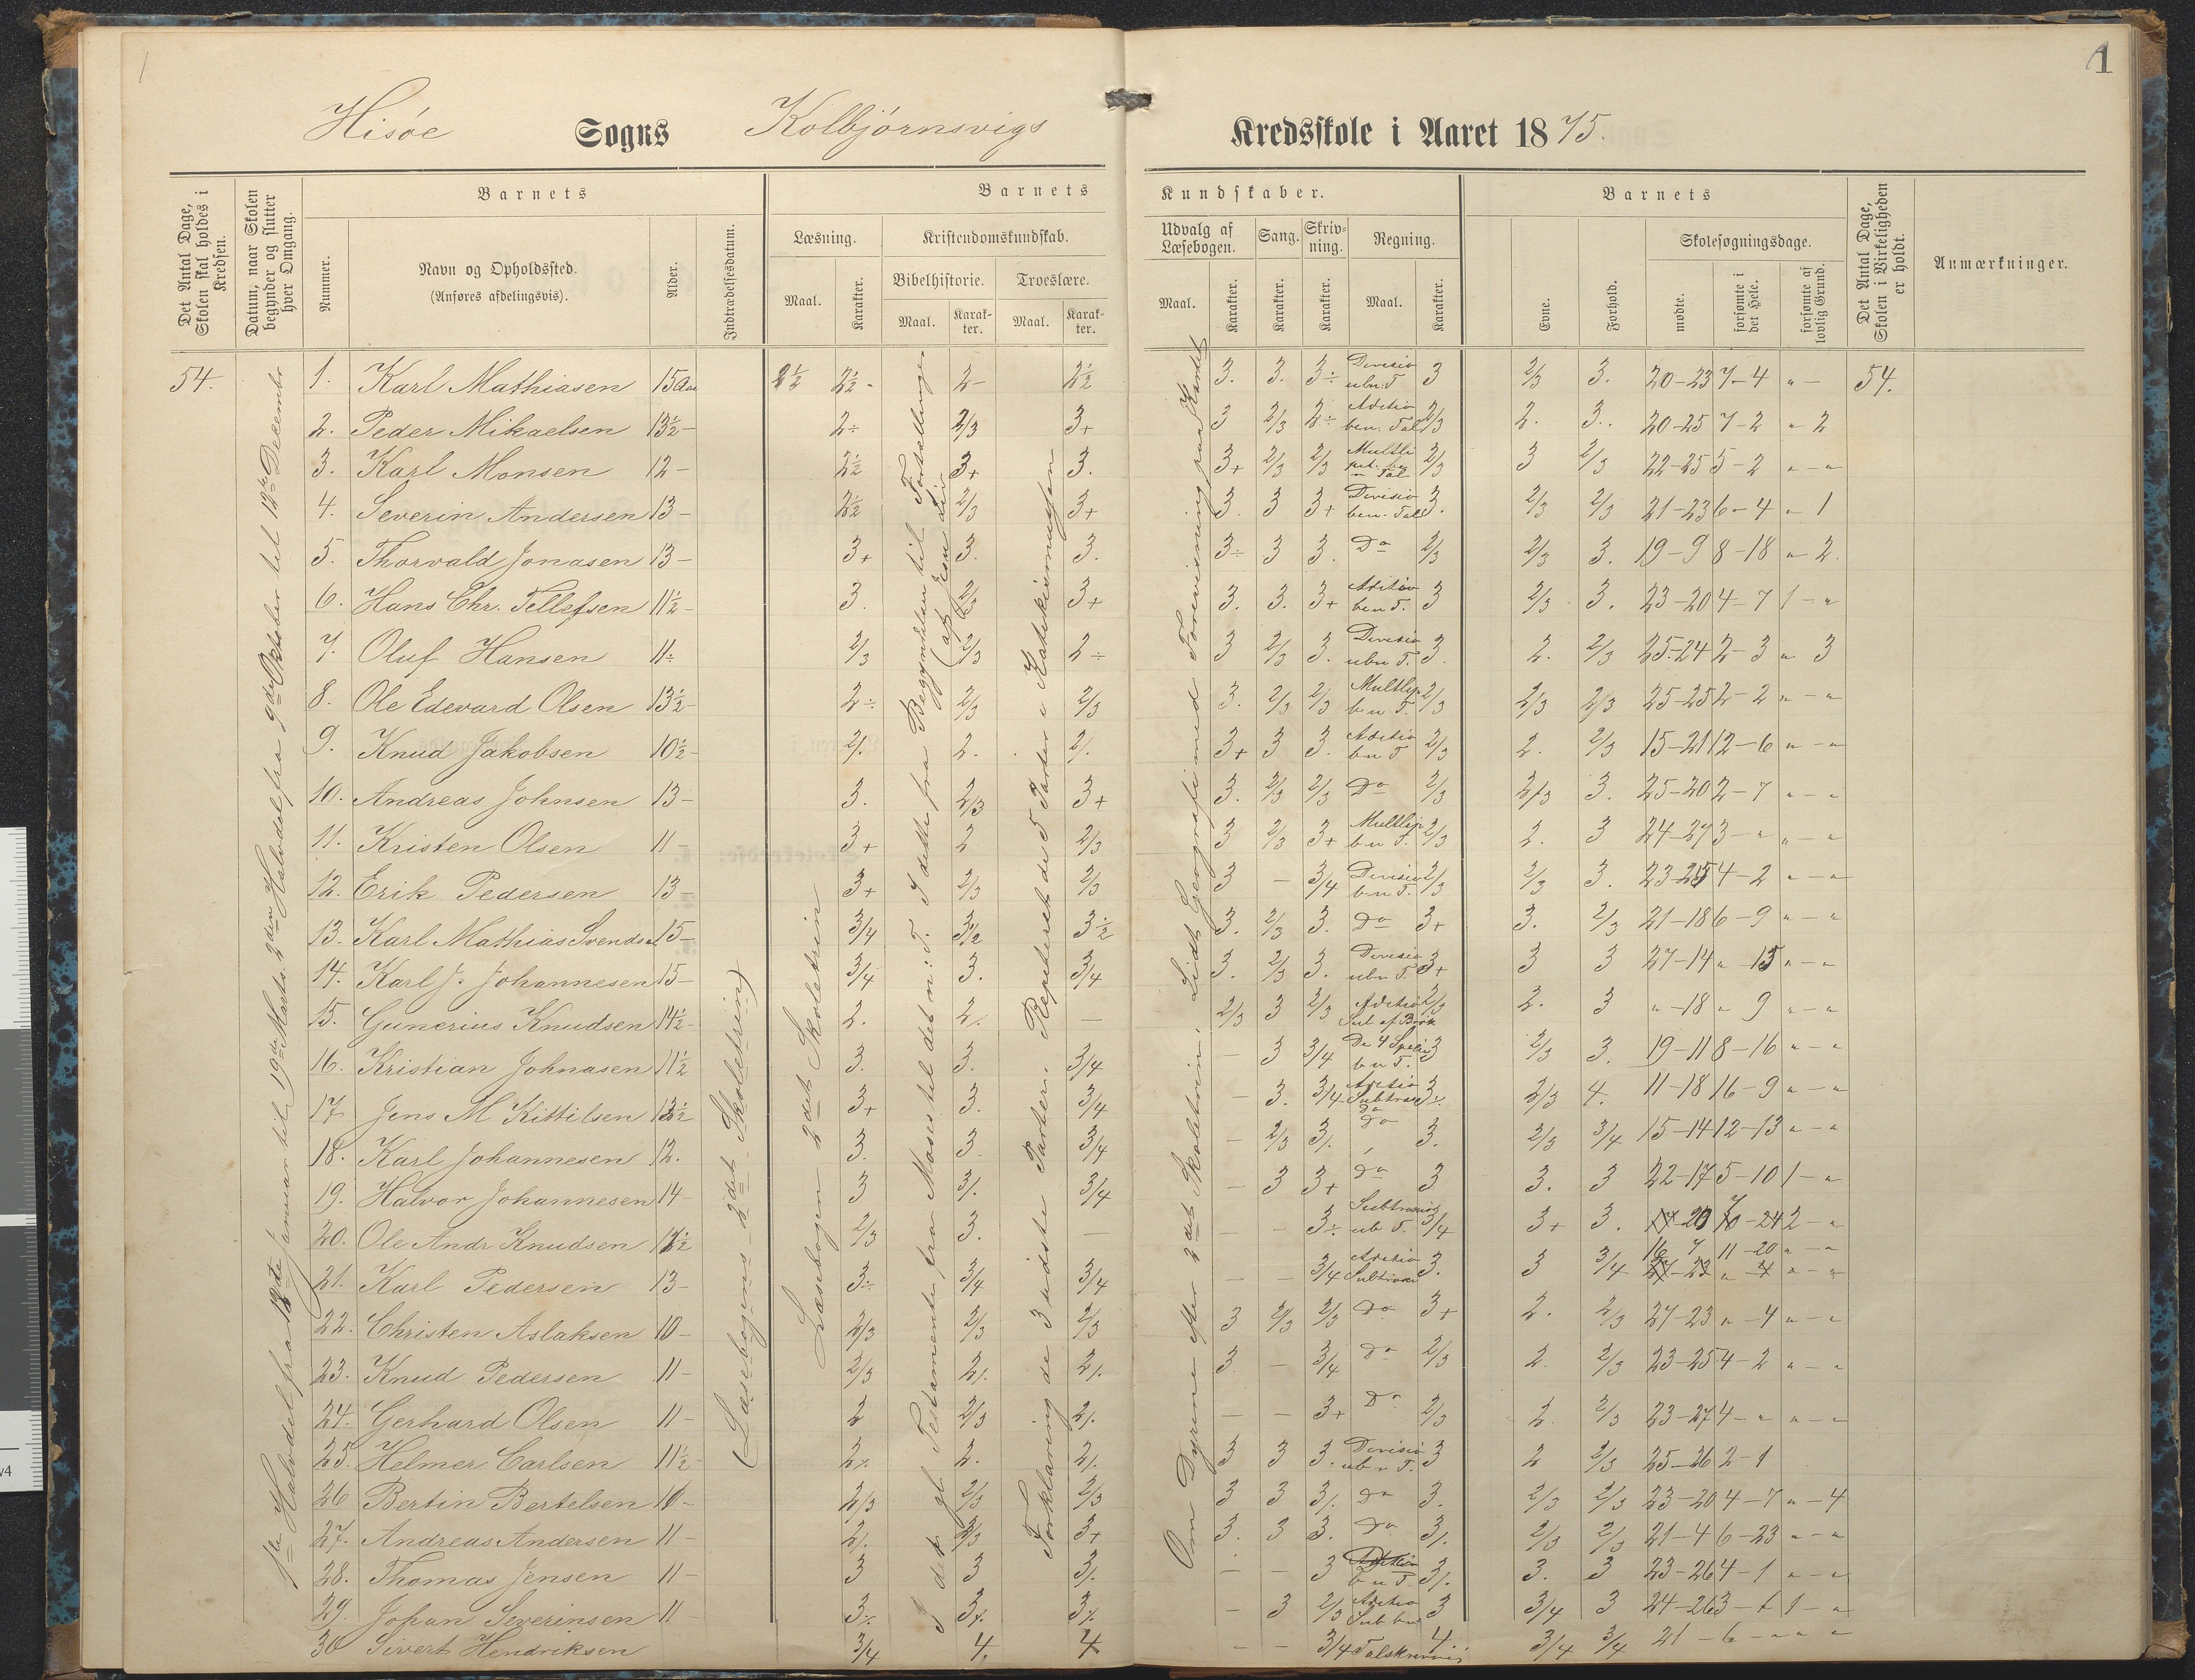 1
1
Hisóe Sogns Kolbjörnsvigs Kredsskole i Aaret 1875.
Det Antal Dage, Skolen skal holdes i Kredsen.
Datum, naar Skolen begynder og slutter hver Omgang.
Barnets
Nummer.
Navn og Opholdssted.
(Anføres afdelingsvis).
Alder.
Indtrædelsesdatum.
Barnets Kundskaber.
Læsning.
Maal.
Karakter.
Kristendomskundskab.
Bibelhistorie.
Maal.
Karakter.
Troeslære.
Maal.
Karakter.
Udvalg af Læsebogen.
Maal.
Karakter.
Sang.
Karakter.
Skrivning.
Karakter.
Regning.
Maal.
Karakter.
Barnets
Evne.
Forhold.
Skolesøgningsdage.
mødte.
forsømte i det Hele.
forsømte af lovlig Grund.
Det Antal Dage, Skolen i Virkeligheden er holdt.
Anmærkninger.
1ste Halvdel fra 18de Januar til 19de Marts. 2den Halvdel fra 9de Oktober til 18de December
(Læsebogens 2det Skoletrin)
Læsebogen 2det Skoletrin
I det gl. Testamente fra Moses til det n: T. I dette fra Begyndelsen til Fortællinger
(af Jesu Liv
Forklaring de 3 sidste Parter. Repeteret de 5 Parter i Katekismussen
Om Dyrene efter 2det Skoletrin, Lidt Geografi med Forevisning paa Kartet
54. 1. Karl Mathiasen 15 Aar 2½ 2½ 2- 2½ 3. 3. 3÷ Divisio ubn: T 3 2/3 3. 20-23 7-4 " - 54.
2. Peder Mikaelsen 13½- 2÷ 2/3 3+ 3 2/3 2÷ Aditio ben. Tal 2/3 2. 3. 20-25 7-2 " 2
3. Karl Monsen 12- 2½ 3+ 3. 3+ 2/3 2/3 2/3 3 2/3 22-25 5-2 "-"
4. Severin Andersen 13- 2½ 2/3 3+ 3. 3 3+ Divisio ben. Tal 3. 2/3 2/3 21-23 6-4 - 1
5. Thorvald Jonasen 13- 3+ 3. 3. 3÷ 3 3. Do 2/3 2/3 3. 19-9 8-18 " 2.
6. Hans Chr. Tellefsen 11½- 3. 2/3 3+ 3. 3. 3+ Aditio ben T. 3 2/3 3. 23-20 4-7 1-"
7. Oluf Hansen 11÷ 2/3 2/3 2÷ 3 2/3 3. Divisio ubn T. 3. 2. 2/3 25-24 2-3 " 3
8. Ole Edevard Olsen 13½- 2÷ 2/3 2/3 3. 2/3 2/3 Multlip b n T. 2/3 2/3 2/3 25-25 2-2 "-"
9. Knud Jakobsen 10½- 2/. 2. 2/. 3+ 3 3. Aditio bn T 2/3 2. 2/3 15-21 12-6 "-"
10. Andreas Johnsen 13- 3. 2/3 3+ 3. 2/3 2/3 Do 2/3 2/3 3. 25-20 2-7 "-"
11. Kristen Olsen 11- 3+ 2 2/3 3 2/3 3+ Multlip b n T. 2/3 2. 3 24-27 3-" "-"
12. Erik Pedersen 13- 3+ 2/3 2/3 3 - 3/4 Divisio b n T. 2/3 2/3 3. 23-25 4-2 "-"
13. Karl Mathias Svendsen 15- 3/4 3½ 3½ 3. 2/3 3. Do 3+ 3. 2/3 21-18 6-9 "-"
14. Karl J. Johannesen 15- 3/4 3. 3/4 3. 2/3 3. Divisio ubn T. 3+ 3 3 27-14 "-13 "-"
15. Gunerius Knudsen 14½- 2. 2/. - 2/3 3 2/3 Aditio Sub af Brök 2/3 2. 3 "-18 " 9 "-"
16. Kristian Johnasen 11½ 3. 3. 3/4 - 3 3/4 De 4 Specie b n T. 3 2/3 3. 19-11 8-16 "-"
17 Jens M Kittilsen 13½ 3+ 3. 3/4 - 3. 3/4 Aditio Subtrac 3/. 2/3 4. 11-18 16-9 "-"
18. Karl Johannesen 12. 3. 3. 3/4 - 2/3 3/. Do 3. 2/3 3/4 15-14 12-13 "-"
19. Halvor Johannesen 14- 3 3/. 3/4 - 3 3+ Do 3 3. 3 22-17 5-10 1-"
20. Ole Andr Knudsen 2/3 3. - - - 3÷ ub T. 3/4 3+ 3. 20 7 -24 2-"
21. Karl Pedersen 13- 3÷ 3/4 3/4 - - 3/4 Aditio 3. 3 3/4 16 7 11-20 "-"
22. Christen Aslaksen 10- 2/3 2/3 2/3 3 2/3 2/3 Do 3+ 2. 2/3 27-23 "-4 "-"
23. Knud Pedersen 11- 2/3 2/. 2/. 3 - 3/4 Do 2/3 2. 2/3 23-25 4-2 "-"
24. Gerhard Olsen 11- 2 2/3 2/. - - 3+ Do 2/3 2. 2/3 23-27 4-" "-"
25. Helmer Carlsen 11½ 2/. 2. 2/. 3 3 3. Divisio ub n T. 3 2 2/3 25-26 2-1
26 Bertin Bertelsen 10- 2/3 2/3 2/3 3 3 3/. Do 3. 2/3 2/3 23-20 4-7 "-4
27. Andreas Andersen 11- 2/. 2/3 3+ 3. 3 3. Do 3/. 2/3 2/3 21-4 6-23 "-"
28. Thomas Jensen 11- 3 3 3/. - - 3 b n T. 3/. 3. 3 23-26 4-1 "-"
29. Johan Severinsen 11- 3/. 3/. 3/. - 3 2/3 Aditio Sub bn 3 3/4 3 24-26 3-1 1-"
30 Sivert Hendriksen 3/4 4. 4 - - 3/4 4. 3/4 3/4 21-6-" "